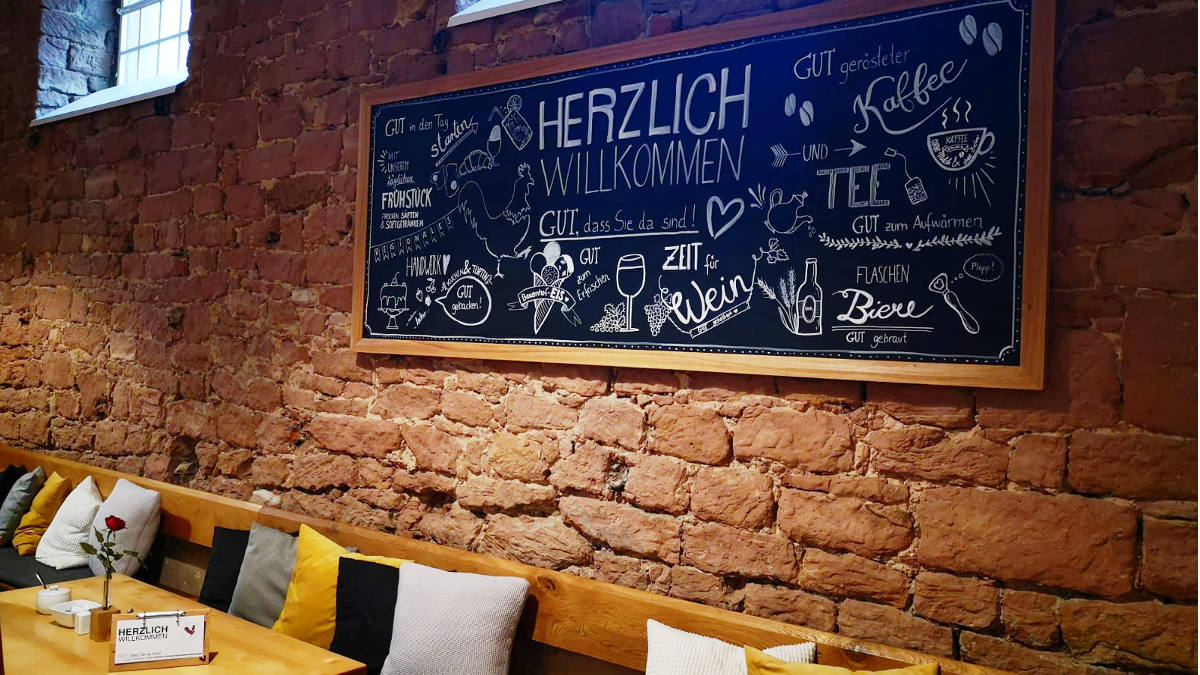 GUT in den Tag
starten
MIT
UNSEREM
täglichen
FRÜHSTÜCK
FRISCHEN SÄFTEN
& SOFTGETRÄNKEN
REGIONALES
HANDWERK
KUCHEN & TORTEN
GUT
gebacken!
HERZLICH
WILLKOMMEN
GUT, dass Sie da sind!
GUT
zum
Erfrischen
Bauernhof-EIS
ZEIT für
Wein
GUT
GUT gerösteter
Kaffee
UND
TEE
KAFFEE
GUT zum Aufwärmen
FLASCHEN
Biere
GUT gebraut
Plopp!
HERZLICH
WILLKOMMEN